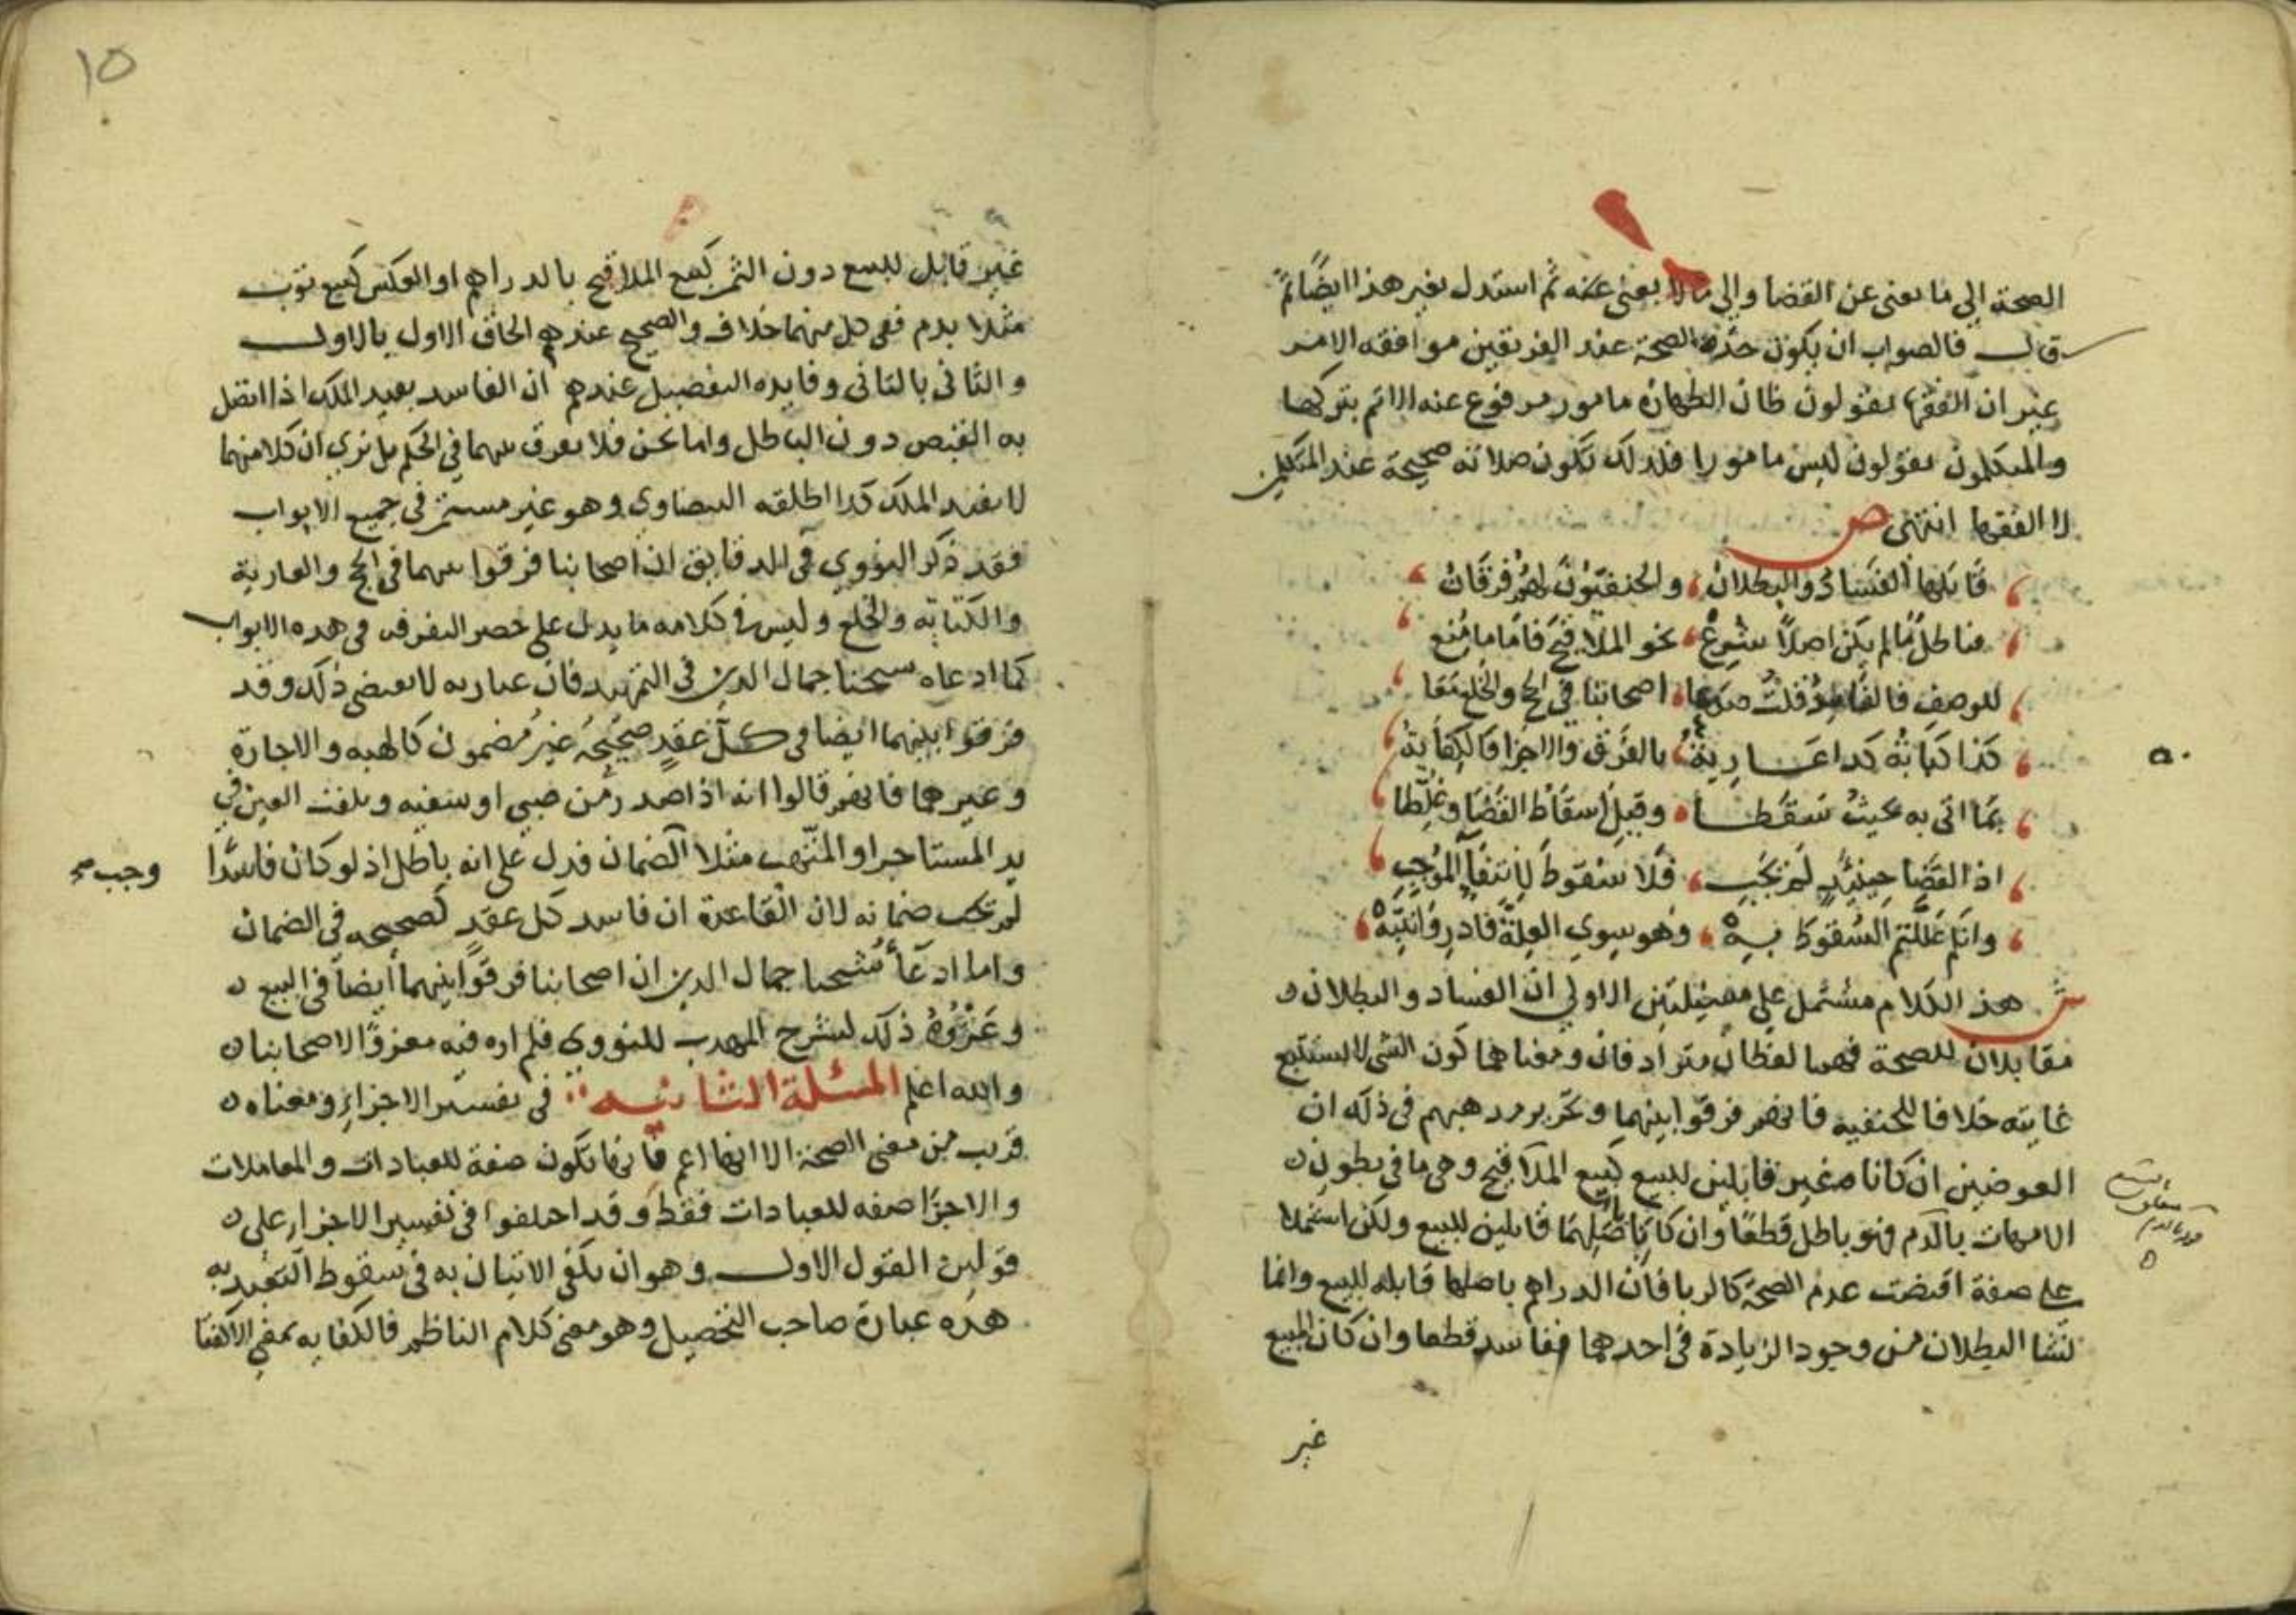 الصحة الي ما يغني عن القضا والي ما لا يغني عنه ثم استدل بغير هذا ايضا ثم
قال فالصواب ان يكون حد الصحة عند الفريقين موافقه الامر
غير ان الفقها يقولون ظان الطهارة مامور مرفوع عنه الاثم بتركها
والمتكلمون يقولون ليس مامورا فلذلك تكون صلاته صحيحة عند المتكلمين
لا الفقها انتهى ص
قابلها الفساد والبطلان، والحنفيون لهم فرقان
فباطل ما لم يكن اصلا شرع، نحو الملاقيح فاما ما منع
للوصف فالفاسد قلت اصحابنا في الحج والخلع معا
كذا كتابة كذا عــاريه، بالفرق والاجزا فالكفاية
بما اتى به بحيث سقطــا وقيل اسقاط القضا وغلطا
اذ القضا حينئذ لم يجب، فلا سقوط لانتفا الموجب
وانكم عللتم السقوط به، وهو سوي العلة فادر وانتبه
ش هذا الكلام مشتمل علي مسئلتين الاولي ان الفساد والبطلان
مقابلان للصحة فهما لفظان مترادفان ومعناهما كون الشي لا يستتبع
غايته خلافا للحنفيه فانهم فرقوا بينهما وتحرير مذهبهم في ذلك ان
العوضين ان كانا غير قابلين للبيع كبيع الملاقيح وهي ما في بطون
الامهات بالدم فهو باطل قطعا وان كانا باصلهما قابلين للبيع ولكن اشتملا
علي صفة اقتضت عدم الصحة كالربا فان الدراهم باصلها قابله للبيع وانما
نشا البطلان من وجود الزيادة في احدهما ففاسد قطعا وان كان المبيع
غير
١٥
غير قابل للبيع دون الثمن كبيع الملاقيح بالدراهم او العكس كبيع ثوب
مثلا بدم ففي كل منهما خلاف والصحيح عندهم الحاق الاول بالاول
والثاني بالثاني وفايده التفصيل عندهم ان الفاسد يفيد الملك اذا اتصل
به القبض دون الباطل واما نحن فلا نفرق بينهما في الحكم بل نري ان كلا منهما
لا يفيد الملك كذا اطلقه البيضاوي وهو غير مستمر في جميع الابواب
فقد ذكر النووي في الدقايق ان اصحابنا فرقوا بينهما في الحج والعارية
والكتابه والخلع وليس في كلامه ما يدل علي حصر التفرقه في هذه الابواب
كما ادعاه شيخنا جمال الدين في التمهيد فان عبارته لا تقتضي ذلك وقد
فرقوا بينهما ايضا في كل عقد صحيحه غير مضمون كالهبه والاجارة
وغيرهما فانهم قالوا انه اذا صدر من صبي او سفيه وتلفت العين في
يد المستاجر او المتهب مثلا الضمان فدل علي انه باطل اذ لو كان فاسدا
وجب صح
لم يجب ضمانه لان القاعدة ان فاسد كل عقد كصحيحه في الضمان
واما ادعا شيخنا جمال الدين ان اصحابنا فرقوا بينهما ايضا في البيع
وعزوه ذلك لشرح المهذب للنووي فلم اره فيه معزوا لاصحابنا
والله اعلم المسئلة الثانيــه في تفسير الاجزاء ومعناه
قريب من معني الصحة الا انها اعم فانها تكون صفة للعبادات والمعاملات
والاجزا صفه للعبادات فقط وقد اختلفوا في تفسير الاجزاء علي
قولين القول الاول وهو ان يكفي الاتيان به في سقوط التعبد به
هذه عبارة صاحب التحصيل وهو معني كلام الناظم فالكفايه بمعني الاكتفا